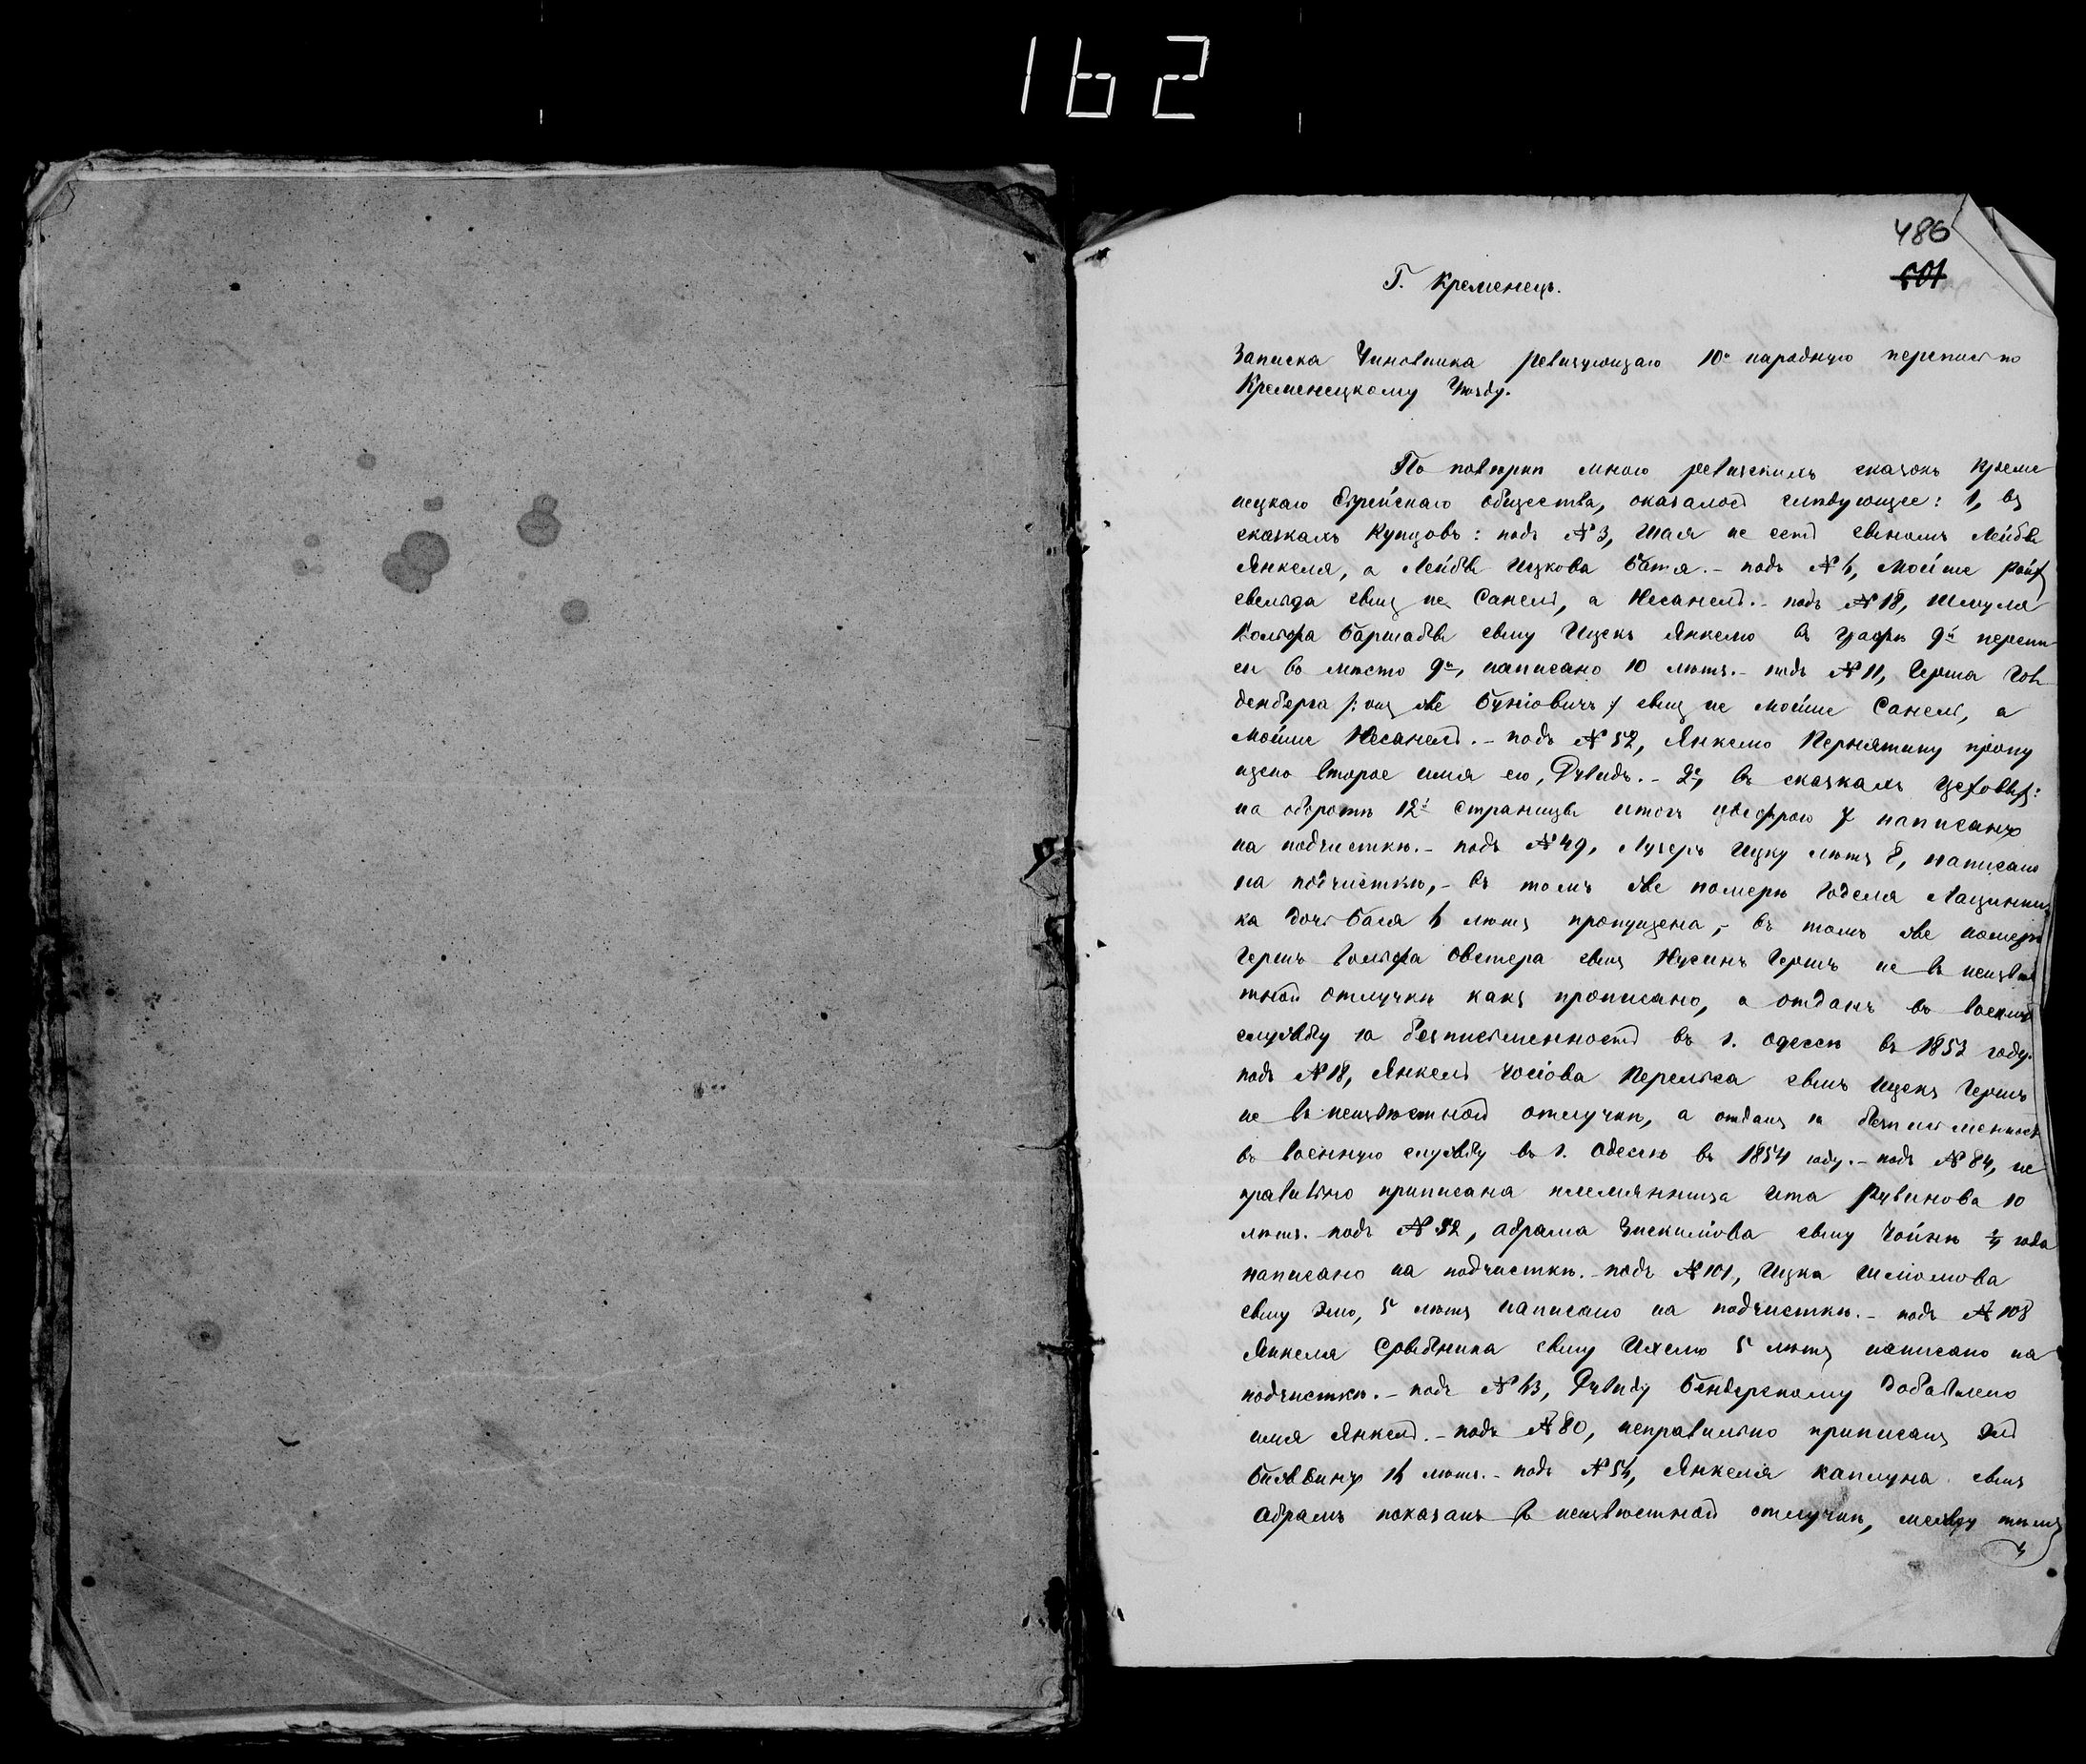 162
486
601
Г. Кременецъ.
Записка Чиновника ревизующаго 10ю народную перепись по
Кременецкому Уѣзду.
По повѣркѣ мною ревизскихъ сказокъ Креме
нецкаго Еврейскаго общества, оказалось слѣдующее: 1, въ
сказкахъ Купцовъ: подъ № 3, Шая не есть сыномъ Лейбы
Янкеля, а Лейбы Ицкова Батя. – подъ № 4, Мойше
сынъ не Санель, а Несанель. – подъ № 18, Шмуля
Вольфа сыну Ицекъ Янкелю въ графѣ 9й перепи
си въ мѣсто 9ти, написано 10 лѣтъ. – подъ № 11, Герша Гол
денберга /: онъ же Бунiовичъ :/ сынъ не Мойше Санель, а
Мойше Несанель. – подъ № 52, Янкелю пропу
щено второе имя его, Дувидъ. – 2е, въ сказкахъ Цеховыхъ:
на оборотѣ 12й страницы итогъ цыфрою 7 написанъ
на подчисткѣ. – подъ № 49, Лузеръ Ицку лѣтъ 8, написано
на подчисткѣ, – въ томъ же номерѣ Годеля
ка дочь Бася 4 лѣтъ пропущена, – въ томъ же номерѣ
Гершъ Вольфа сынъ Нусинъ Гершъ не въ неизвѣ
стной отлучкѣ какъ прописано, а отданъ въ военную
службу за безписьменность въ г. Одессѣ въ 1853 году.
подъ № 18, Янкель Iосiова Перельса сынъ Ицекъ Гершъ
не въ неизвѣстной отлучкѣ, а отданъ за безписьменность
въ военную службу въ г. Одессѣ въ 1854 году. – подъ № 84, не
правильно приписана племянница Ита Рувинова 10
лѣтъ. подъ № 52, Абрама сыну года
написано на подчисткѣ. – подъ № 101, Ицка Шлiомова
сыну Элю, 5 лѣтъ написано на подчисткѣ. – подъ № 108
Янкеля сыну Ихелю 5 лѣтъ написано на
подчисткѣ. – подъ № 43, Дувиду Бендерскому добавлено
имя Янкель. – подъ № 80, неправильно приписанъ Эль
14 лѣтъ. – подъ № 54, Янкеля Каплуна сынъ
Абрамъ показанъ въ неизвѣстной отлучкѣ, между тѣмъ